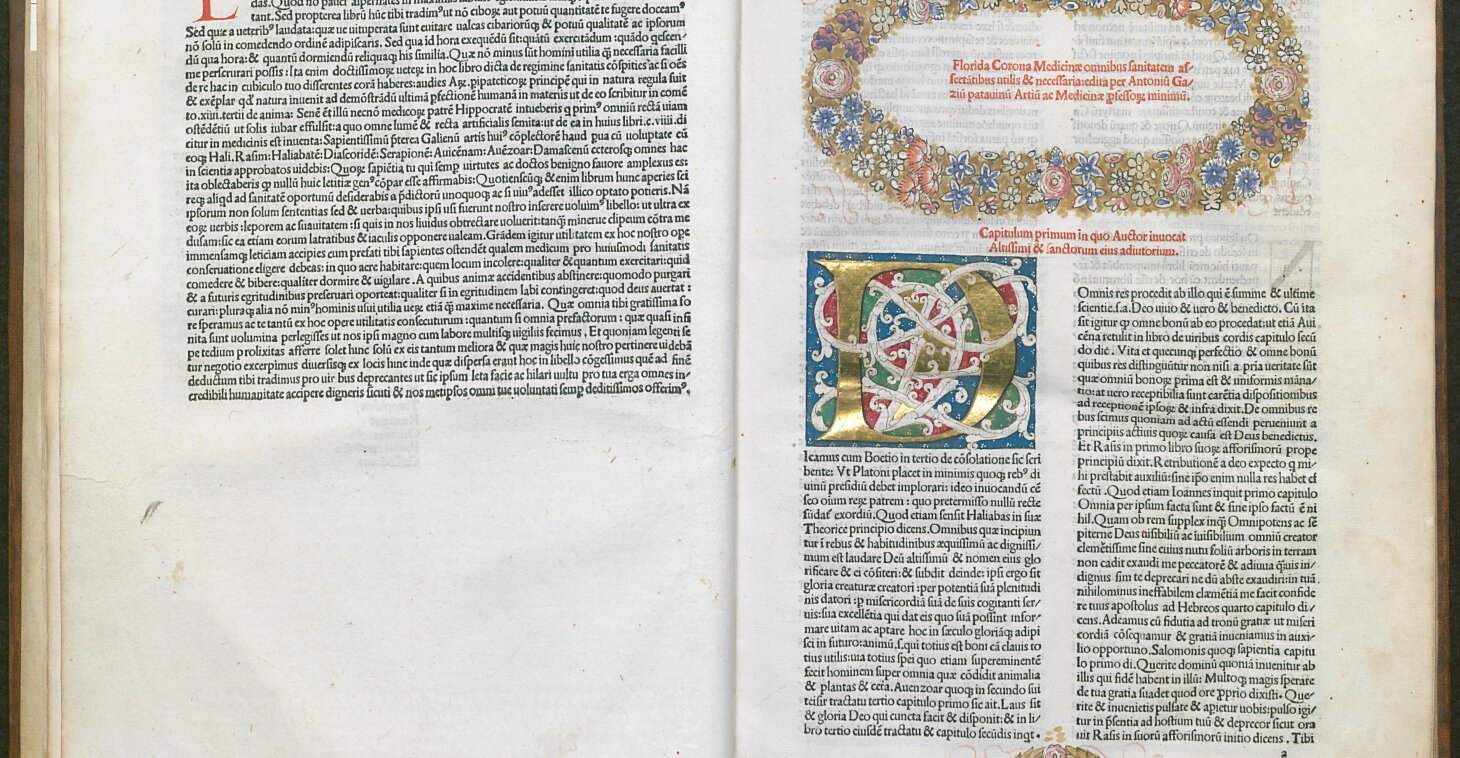 L das. Quod nō pauci
tant. Sed propterea librū hūc tibi tradimꝰ ut nō cibog aut potuū quantitatē te fugere doceamꝰ
Sed quæ a ueteribꝰ laudata: quæ ue uituperata sunt euitare ualeas cibariorūq; & potuū qualitatē ac ipsorum
nō solū in comedendo ordinē adipiscaris. Sed qua id hora exequēdū sit: quātū exercitādum: quādo qescen/
dū qua hora: & quantū dormiendū reliquaq; his similia. Quæ nō minus sūt homini utilia q̄ necessaria facilli
me perscrutari possis: Ita enim doctissimoꝝ ueteꝝ in hoc libro dicta de regimine sanitatis cōspities ac si oēs
de re hac in cubiculo tuo differentes corā haberes: audies Arꝝ. pipateticoꝝ principē qui in natura regula fuit
& exēplar qđ natura inuenit ad demōstrādū ultimā pfectionē humanā in materiis ut de eo scribitur in comē
to. xiiii. tertii de anima: Senē ētillū necnō medicoꝝ patrē Hippocratē intueberis q primꝰ omniū rectā uiam
ostēdētiū ut solis iubar effulsit: a quo omne lumē & recta artificialis semita: ut de ea in huius libri. c. viiii. di
citur in medicinis est inuenta: Sapientissimū pterea Galienū artis huiꝰ cōplectorē haud pua cū uoluptate cū
eoq; Hali. Rasim: Haliabatē: Diascoridē: Serapionē: Auicēnam: Auēzoar: Damascenū ceterosq; omnes hac
in scientia approbatos uidebis: Quoꝝ sapiētia tu qui semp uirtutes ac doctos benigno fauore amplexus es:
ita oblectaberis ꝙ nullū huic letitiæ genꝰ cōpar esse affirmabis: Quotienscūq; & enim librum hunc aperies sci
req; aliqd ad sanitatē oportunū desiderabis a pdictorū unoquoq; ac si uiuꝰ adesset illico optato potieris. Nā
ipsorum non solum sententias sed & uerba: quibus ipsi usi fuerunt nostro inserere uoluimꝰ libello: ut ultra ex
eoꝝ uerbis: leporem ac suauitatem: si quis in nos liuidus obtrectare uoluerit: tanq̄ minerue clipeum cōtra me
dusam: sic ea etiam eorum latratibus & iaculis opponere ualeam. Grādem igitur utilitatem ex hoc nostro ope
immensamq; leticiam accipies cum prefati tibi sapientes ostendēt qualem medicum pro huiusmodi sanitatis
conseruatione eligere debeas: in quo aere habitare: quem locum incolere: qualiter & quantum exercitari: quid
comedere & bibere: qualiter dormire & uigilare. A quibus animæ accidentibus abstinere: quomodo purgari
& a futuris egritudinibus preseruari oporteat: qualiter si in egritudinem labi contingeret: quod deus auertat:
curari: pluraq; alia nō minꝰ hominis usui utilia ueꝝ etiā q̄ maxime necessaria. Quæ omnia tibi gratissima fo
re speramus ac te tantū ex hoc opere utilitatis consecuturum: quantum si omnia prefactorum: quæ quasi infi
nita sunt uolumina perlegisses ut nos ipsi magno cum labore multisq; uigiliis fecimus. Et quoniam legenti se
pe tedium prolixitas afferre solet hinc solū ex eis tantum meliora & quæ magis huic nostro pertinere uidebā
tur negotio excerpimus diuersisq; ex locis hinc inde quæ dispersa erant hoc in libello cōgessimus quē ad finē
deductum tibi tradimus pro uir bus deprecantes ut sic ipsum leta facie ac hilari uultu pro tua erga omnes in/
credibili humanitate accipere digneris sicuti & nos metipsos omni tue uoluntati semp deditissimos offerimꝰ.
Florida Corona Medicinæ omnibus sanitatem af/
fectātibus utilis & necessaria: edita per Antoniū Ga/
ziū patauinū Artiū ac Medicinæ ꝓfessoꝝ minimū.
Capitulum primum in quo Auctor inuocat
Altissimi & sanctorum eius adiutorium.
D
Icamus cum Boetio in tertio de cōsolatione sic scri
bente: Vt Platoni placet in minimis quoq; rebꝰ di
uinū presidiū debet implorari: ideo inuocandū cē
seo oium reꝝ patrem: quo pretermisso nullū recte
fūdaꝰ exordiū. Quod etiam sensit Haliabas in suæ
Theorice principio dicens. Omnibus quæ incipiun
tur ī rebus & habitudinibus æquissimū ac dignissi/
mum est laudare Deū altissimū & nomen eius glo
rificare & ei cōfiteri: & subdit deinde: ipsi ergo sit
gloria creaturæ creatori: per potentiā suā plenitudi
nis datori: ꝑ misericordiā suā de suis cogitanti ser/
uis: sua excellētia qui dat eis quo suā possint infor/
mare uitam ac aptare hoc in sæculo gloriāq; adipi
sci in futuro: animū. s. qui totius est boni cā clauis to
tius utilis: uia totius spei quo etiam supereminentē
fecit hominem super omnia quæ cōdidit animalia
& plantas & cetā. Auenzoar quoq; in secundo sui
teisir tractatu tertio capitulo primo sic ait. Laus sit
& gloria Deo qui cuncta facit & disponit: & in li/
bro tertio eiusdē tractatu & capitulo secūdis inqt.
Omnis res procedit ab illo qui ē summe & ultime
scientie. s. a. Deo uiuo & uero & benedicto. Cū ita
sit igitur ꝙ omne bonū ab eo procedat: ut etiā Aui
cēna retulit in libro de uiribus cordis capitulo secū
do dic̄. Vita et quecunq; perfectio & omne bonū
quibus res distinguūtur non nisi a pria ueritate sūt
quæ omniū bonoꝝ prima est & uniformis māna/
tio: at uero receptibilia sunt carētia dispositionibus
ad receptionē ipsoꝝ & infra dixit. De omnibus re
bus scimus quoniam ad actū essendi perueniunt a
principiis actiuis quoꝝ causa est Deus benedictus.
Et Rasis in primo libro suoꝝ afforismorū prope
principiū dixit. Retributionē a deo expecto q mi/
hi prestabit auxiliū: sine ipō enim nulla res habet ef
fectū. Quod etiam Ioannes inquit primo capitulo
Omnia per ipsum facta sunt & sine ipso factū ē ni
hil. Quam ob rem supplex inq̄ Omnipotens ac sē
piterne Deus uisibiliū ac iuisibilium omniū creator
clemētissime sine cuius nutu foliū arboris in terram
non cadit exaudi me peccatorē & adiuua q̄uis in/
dignus sim te deprecari ne dū abs te exaudiri: in tuā.
nihilominus ineffabilem clæmētiā me facit confide
re tuus apostolus ad Hebreos quarto capitulo di/
cens. Adeamus cū fidutia ad tronū gratiæ ut miseri
cordiā cōsequamur & gratiā inueniamus in auxi/
lio opportuno. Salomonis quoq; sapientia capitu
lo primo di. Querite dominū quoniā inuenitur ab
illis qui fidē habent in illū: Multoq; magis sperare
de tua gratia suadet quod ore ꝓprio dixisti. Que/
rite & inuenietis pulsate & apietur uobis: pulso igi/
tur in p̄sentia ad hostium tuū & deprecor sicut ora
uit Rasis in suorū afforismorū initio dicens. Tibi
a